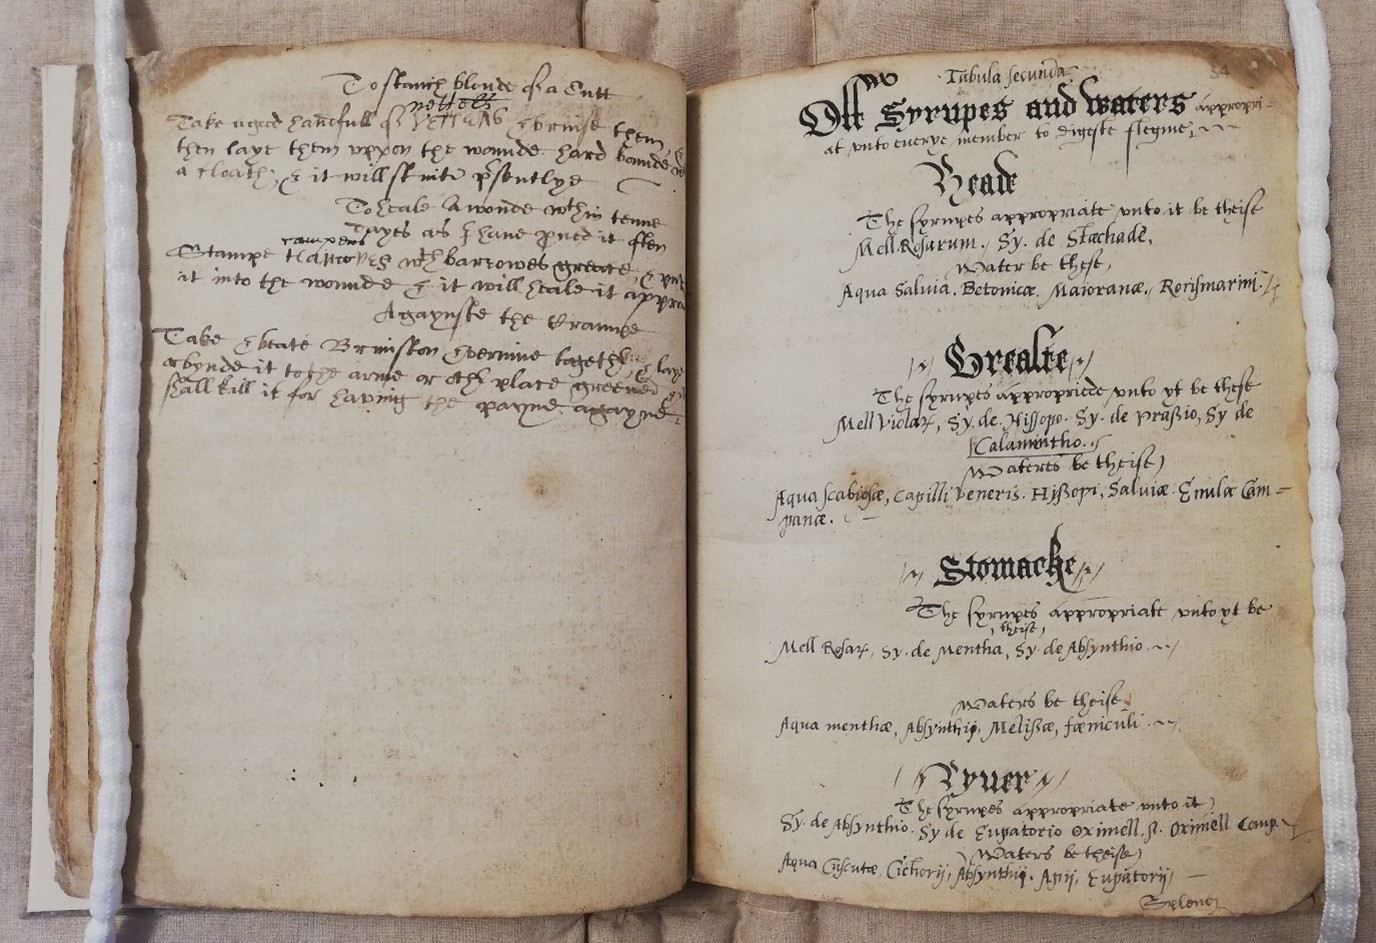 To stanch bloude of a Cutt
nettels
Take a good handfull of & bruise them, &
then laye them uppon the wounde hard bounde wt
a cloath, & it will stint psentlye
To heale A wonde wthin tenne
dayes as I have pued it often
Stampe wth barrowes greace, & put
it into the wounde & it will heale it
Agaynste the Krampe
Take & beate Brimston & vermine togethr, & laye
or bynde it to the arme or othr place greeved
shall kill it for having the payne agayne
Tabula secunda. 54
Off Syrupes and waters appropri-
at unto euerye member to digeste flegme,
Heade
The syrupes appropriate unto it be theise
Mell Rosarum, Sy. de Stæchade,
Water be these,
Aqua Salvia. Betonicæ. Maioranæ, Rorismarini.
Brealte
The syrupes appropriede unto yt be these
Mell Violar, Sy. de. Hissopo. Sy. de praßio, Sy de
Calamintho.
Wateres be theise
Aqua scabiosæ, Capilli Veneris. Hißopi, Salviæ. Enulæ Cam=
panæ.
Stomacke
The syrupes appropriate unto yt be
theise,
Mell Rosar, Sy. de Mentha, Sy de Absynthio
Waters be theise
Aqua menthæ, Absynthij, Melißæ, fæniculi
Lyuer
The syrupes appropriate unto it
Sy. de Absynthio. Sy de Eupatorio Oximell. s. Oximell Comp.
Waters be theise
Aqua Cuscutæ, Cichorij, Absynthij. Apij, Eupatorij,
Splene